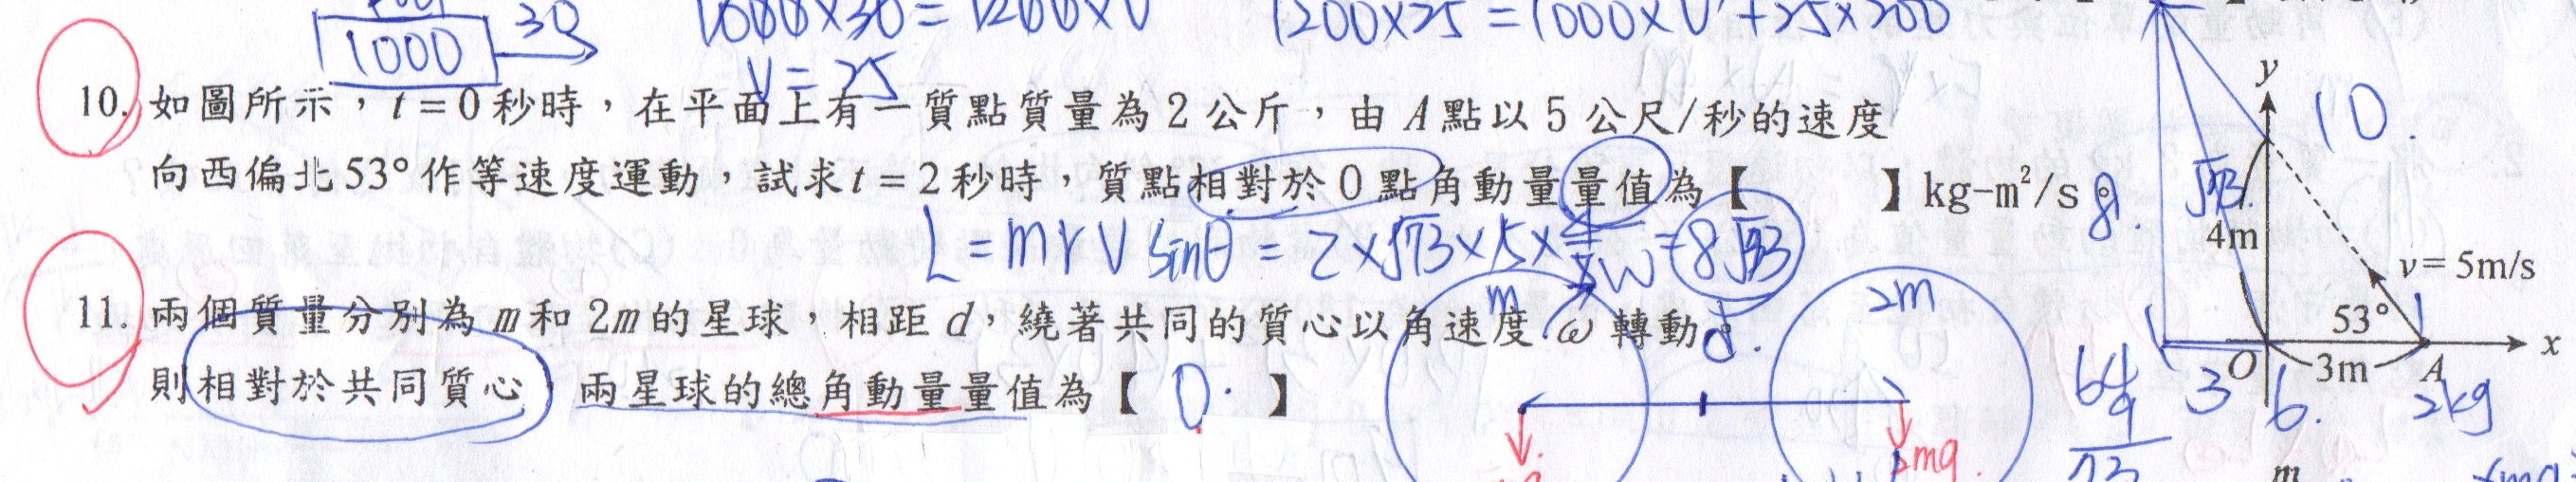 1000 30
1000×30=1200×V 1200×25=1000×V'+25×200
V=25
10. 如圖所示，t=0秒時，在平面上有一質點質量為2公斤，由A點以5公尺/秒的速度
向西偏北53°作等速度運動，試求t=2秒時，質點相對於O點角動量量值為【 】kg-m²/s。
L=mrVsinθ=2×√73×5×4/5=8√73
11. 兩個質量分別為m和2m的星球，相距d，繞著共同的質心以角速度ω轉動，
則相對於共同質心，兩星球的總角動量量值為【 0. 】
m W 2m
d.
2mg
y
10.
8.
√73
4m
v=5m/s
53°
O 3m A x
3 6. 2kg
64
9
73
m